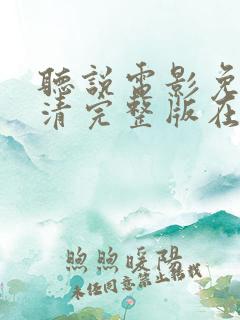 聽說電影免
清完整版在
煦煦暖陽
未任同意禁止轉載